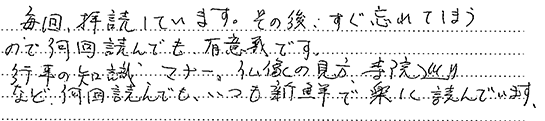 毎回、拝読しています。その後、すぐ忘れてしまう
ので何回読んでも有意義です。
行事の知識　マナー、仏像の見方　寺院巡り
など何回読んでも、いつも新鮮で楽しく読んでいます、